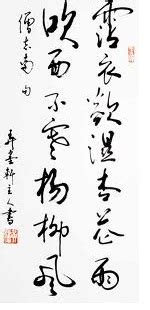 霑衣欲湿杏花雨
吹面不寒杨柳风
僧志南句
弄墨轩主人書